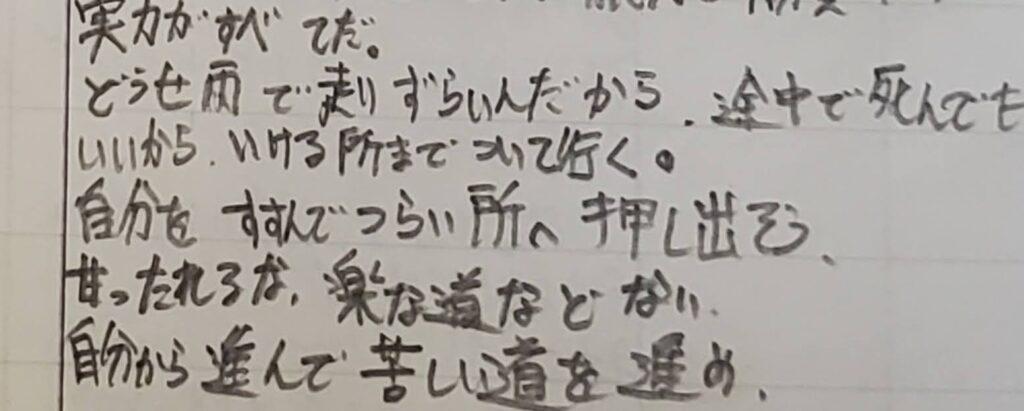 実力がすべてだ。
どうせ雨で走りずらいんだから、途中で死んでも
いいから、いける所までついて行く。
自分をすすんでつらい所へ押し出そう、
甘ったれるな、楽な道などない、
自分から進んで苦しい道を進め、